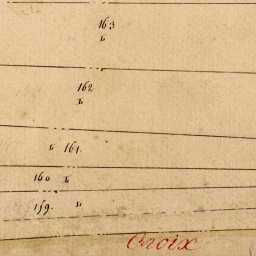 163
b
162
b
b 161.
160 b
159. b
Croix